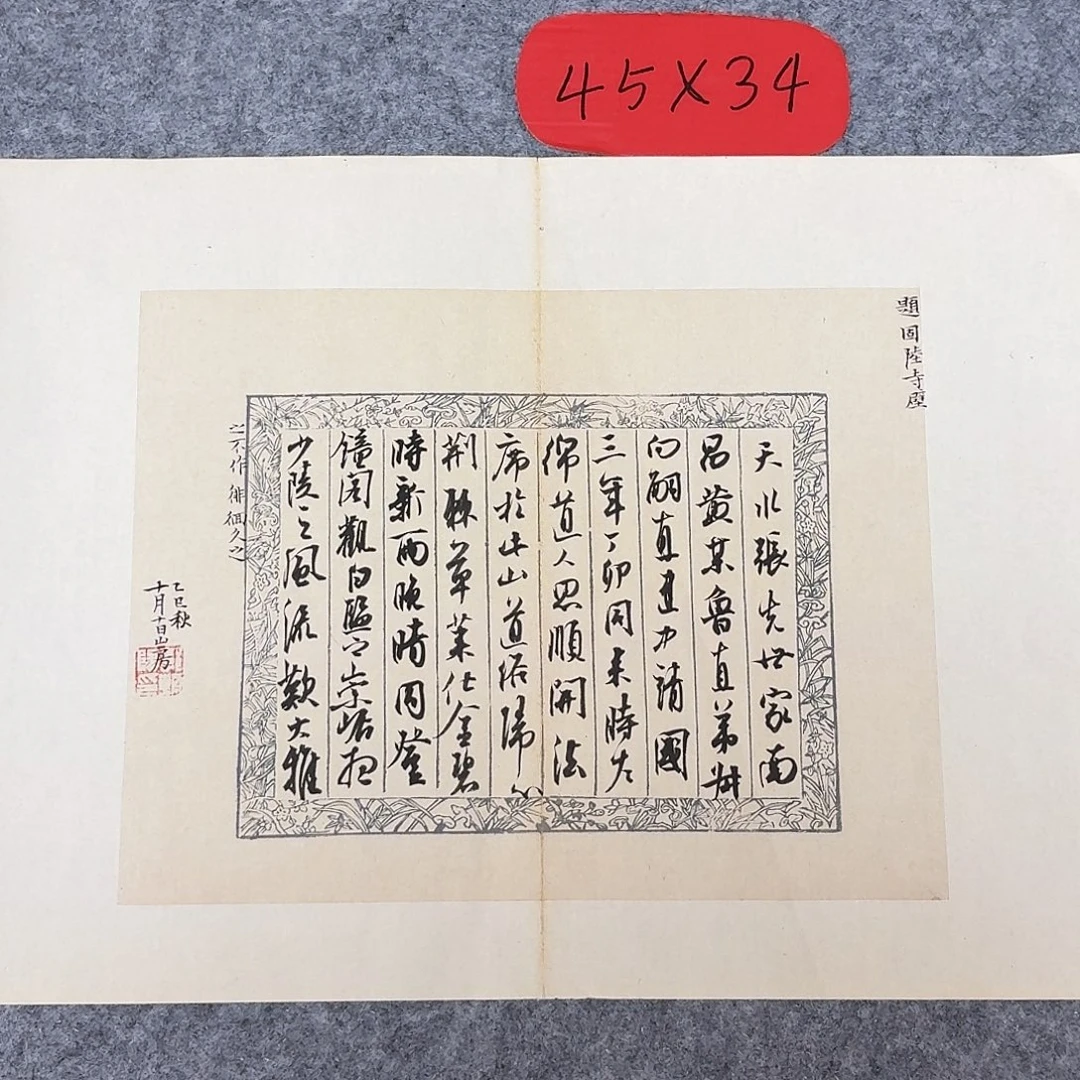 45X34
題固陸寺壁
天水張先世家南
昌黃某魯直弟叔
向嗣直建中請國
三年丁卯同来時
綿道人思順開法
席於此山道俗歸心
荆棘草莱化金碧
時新雨晚晴同登
鐘閣觀白鹽之崇崛想
少陵之風流歎大雅
之不作徘徊久之
乙巳秋
十月十日山房